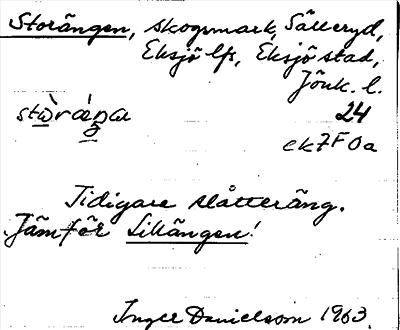 Storängen, skogsmark, Sälleryd,
Eksjö lfs, Eksjö stad,
Jönk. l.
24
ek7F0a
Tidigare slåtteräng.
Jämför Lillängen!
Inger Danielsson 1963.